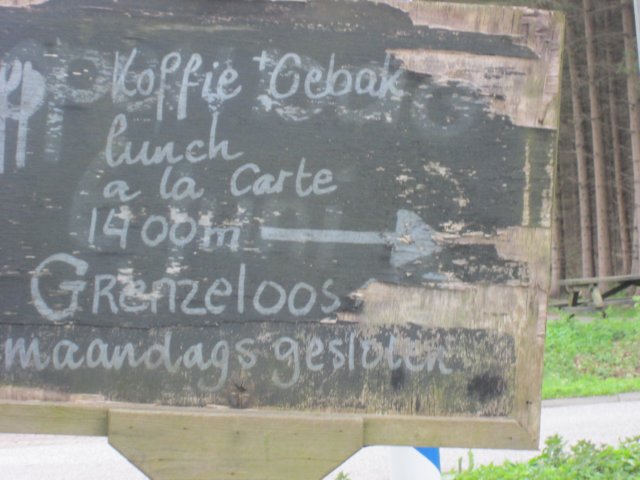 Koffie + Gebak
lunch
a la Carte
1400m
Grenzeloos
maandags gesloten